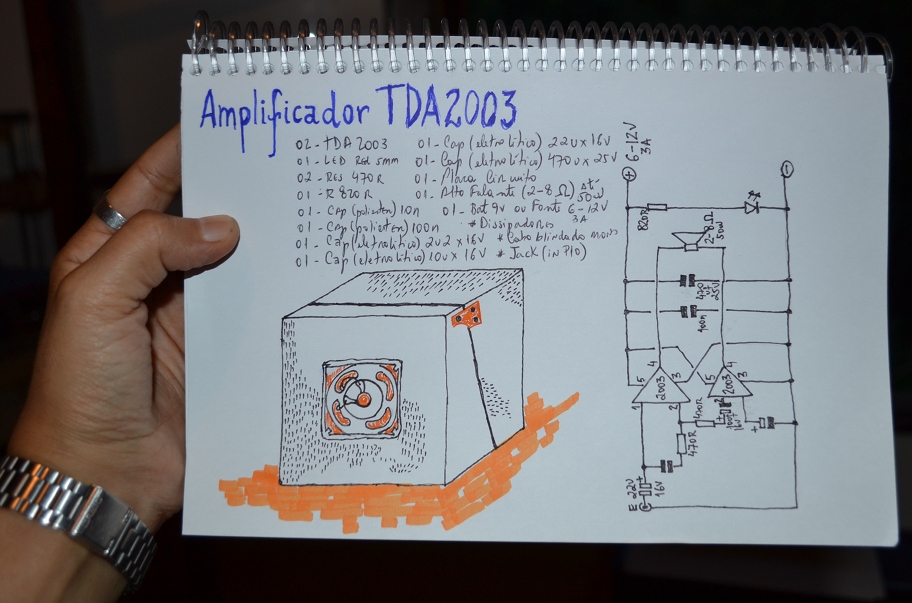 Amplificador TDA2003
02 - TDA 2003
01 - LED Red 5mm
02 - Res 470R
01 - R 820R
01 - Cap (poliester) 10n
01 - Cap (poliester) 100n
01 - Cap (eletrolitico) 2u2 x 16V
01 - Cap (eletrolitico) 10u x 16V
01 - Cap (eletrolitico) 22u x 16V
01 - Cap (eletrolitico) 470u x 25V
01 - Placa Circuito
01 - Alto Falante (2-8 Ω) Até 50w
01 - Bat 9v ou Fonte 6-12V 3A
* Dissipadores
* Cabo blindado mono
* Jack (in P10)
6-12V
3A
820R
2-8 Ω
50w
470
uf
25V
100n
5
4
3
2003
1
2
5
4
3
2003
2
470R
470R
10uf
16V
E
22u
16V